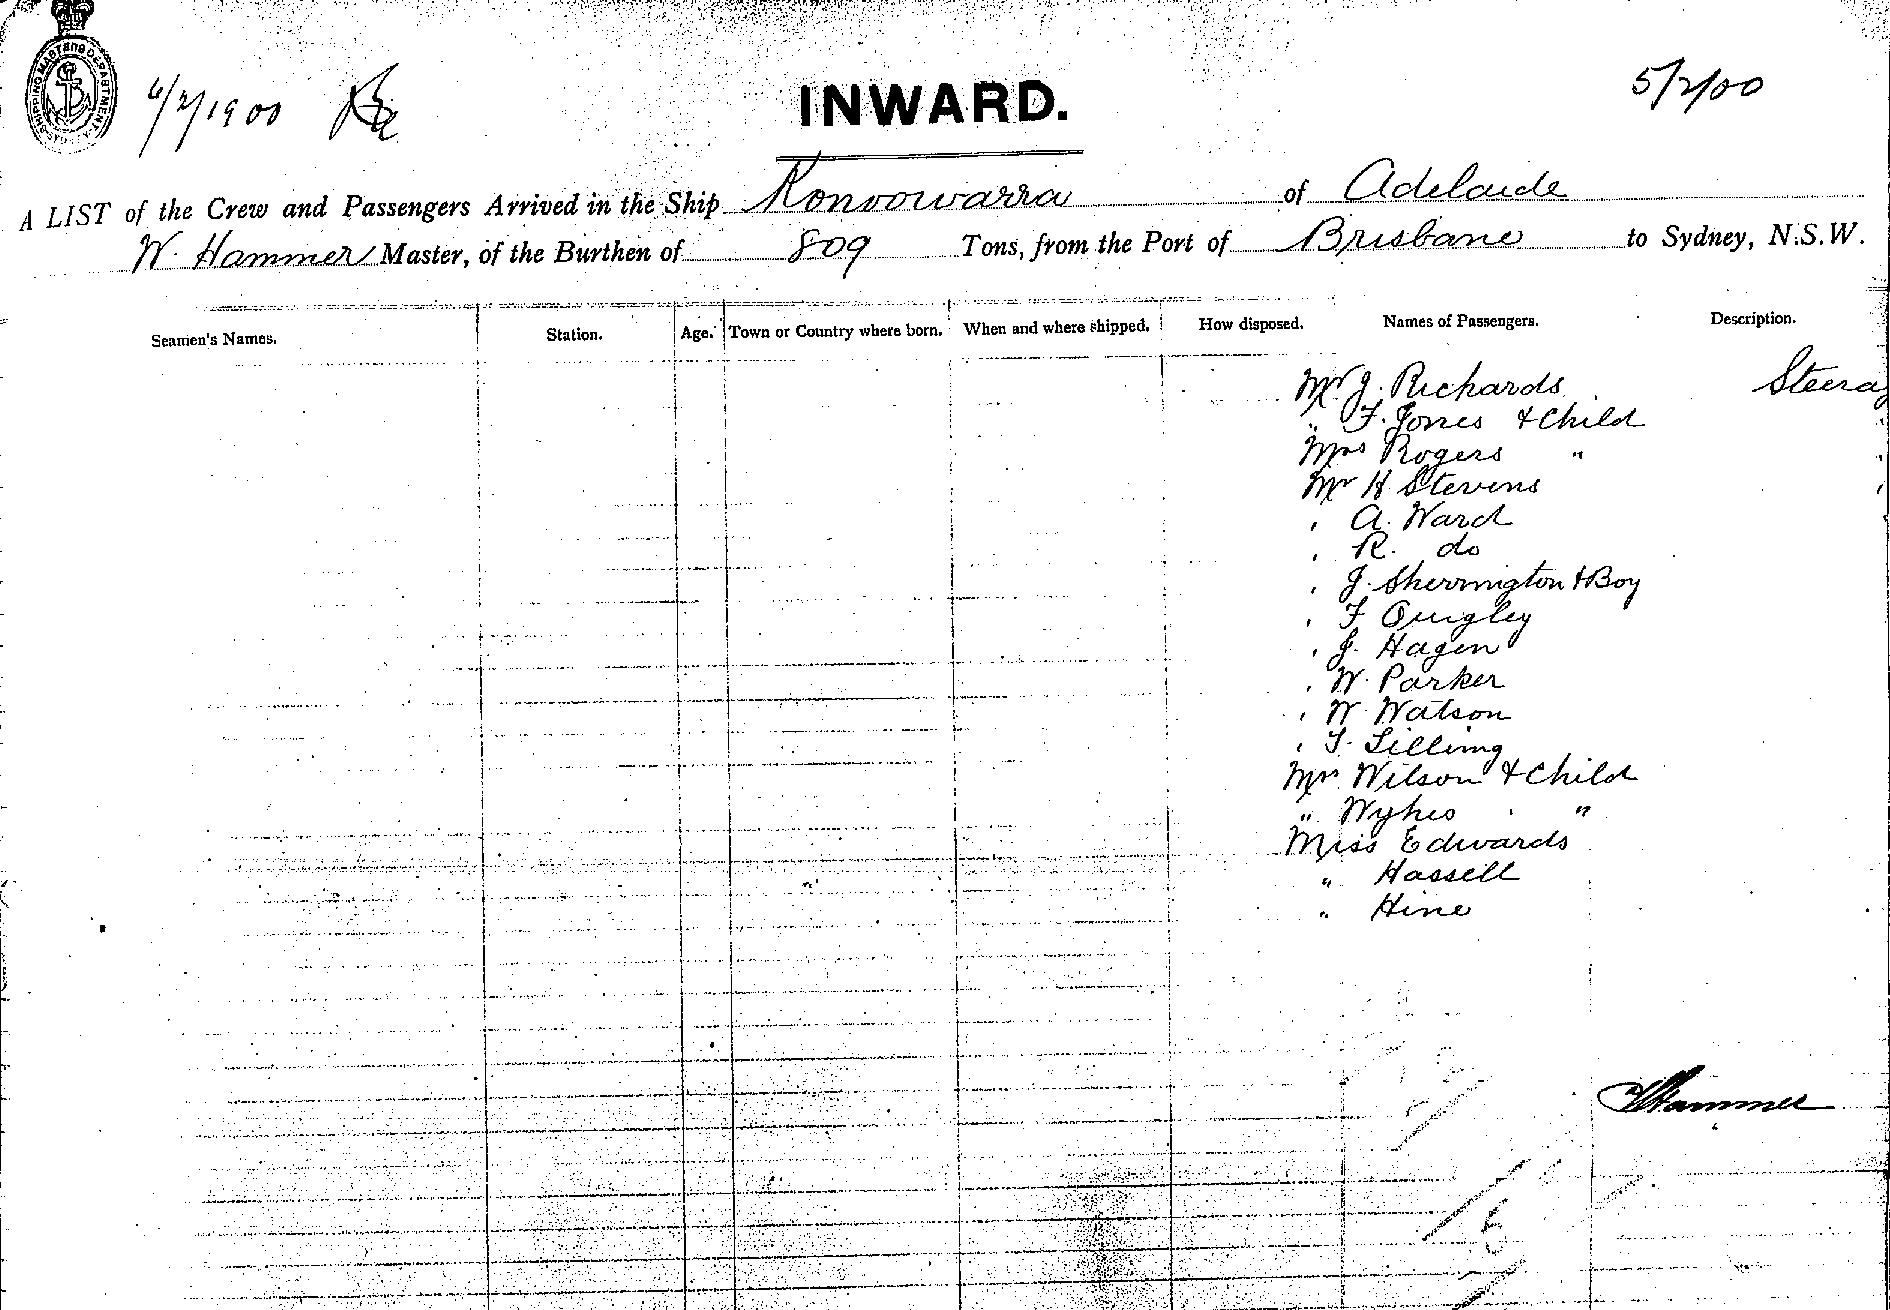 SHIPPING MASTERS DEPARTMENT
6/2/1900
INWARD.
5/2/00
A LIST of the Crew and Passengers Arrived in the Ship Konoowarra of Adelaide
W. Hammer Master, of the Burthen of 809 Tons, from the Port of Brisbane to Sydney, N.S.W.
Seamen's Names. Station. Age. Town or Country where born. When and where shipped. How disposed. Names of Passengers. Description.
Mr J. Richards Steera
" F. Jones & Child
Mrs Rogers "
Mr H Stevens
" A. Ward
" R. do
" J. Sherrington & Boy
" F Quigley
" J. Hagen
" W. Parker
" W Watson
" T. Tilling
Mrs Wilson & Child
" Wykes "
Miss Edwards
" Hassell
" Hine
Hammer